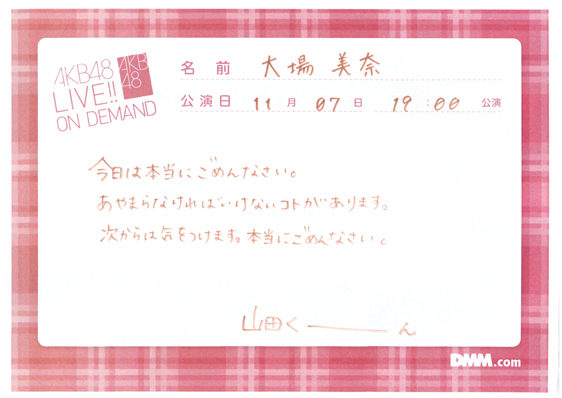 AKB48
LIVE!!
ON DEMAND
AKB
48
名前 大場美奈
公演日 11月07日 19:00公演
今日は本当にごめんなさい。
あやまらなければいけないコトがあります。
次からは気をつけます。本当にごめんなさい。
山田く――――ん
DMM.com